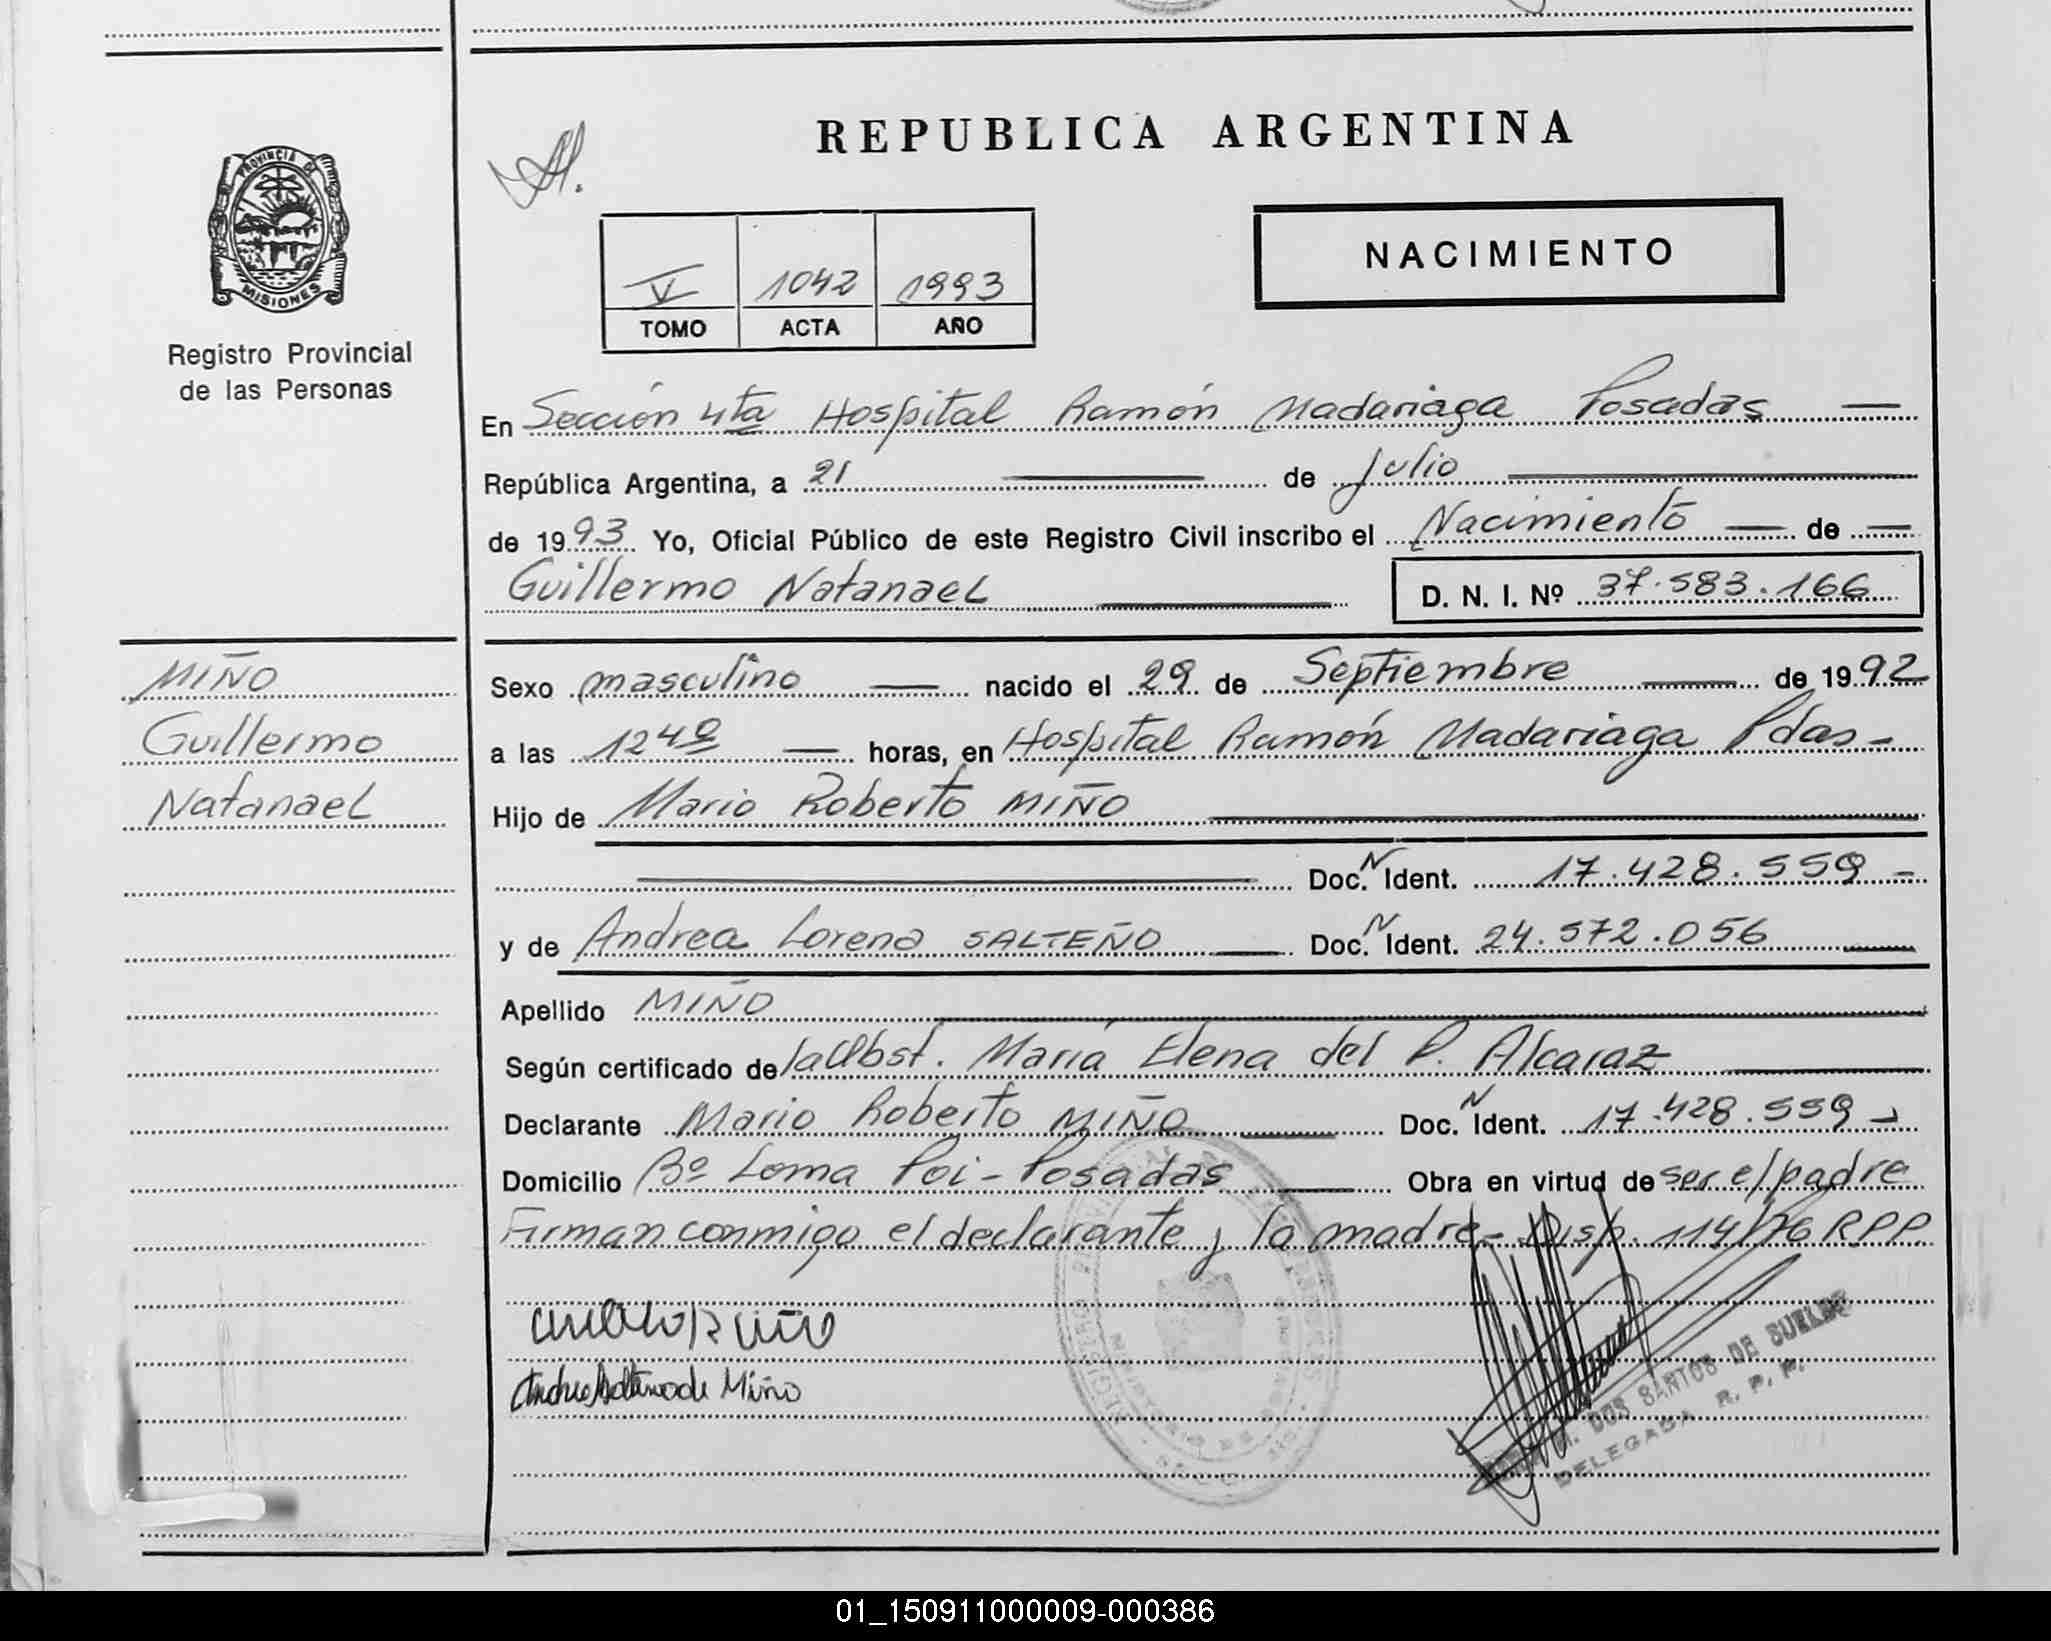 REPUBLICA ARGENTINA
PROVINCIA DE
MISIONES
Registro Provincial
de las Personas
NACIMIENTO
V 1042 1993
TOMO ACTA AÑO
En Sección 4ta Hospital Ramón Madariaga Posadas
República Argentina, a 21 de julio
de 1993 Yo, Oficial Público de este Registro Civil inscribo el Nacimiento de
Guillermo Natanael D. N. I. Nº 37.583.166
MIÑO
Guillermo
Natanael
Sexo masculino nacido el 29 de Septiembre de 1992
a las 1240 horas, en Hospital Ramón Madariaga Pdas-
Hijo de Mario Roberto MIÑO
Doc. N Ident. 17.428.559-
y de Andrea Lorena SALTEÑO Doc. N Ident. 24.572.056
Apellido MIÑO
Según certificado de la Obst. María Elena del P. Alcaraz
Declarante Mario Roberto MIÑO Doc. N Ident. 17.428.559
Domicilio Bº Loma Poi - Posadas Obra en virtud de ser el padre
Firman conmigo el declarante y la madre- Disp. 114/76 RPP.
Miño
M. DOS SANTOS DE
DELEGADA R. P. P.
01_150911000009-000386